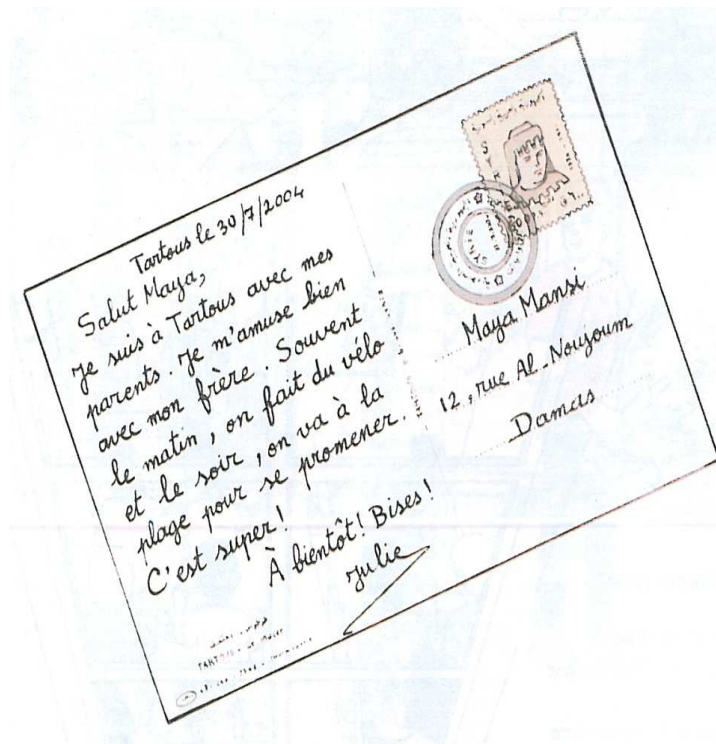 Tartous le 30/7/2004
Salut Maya,
Je suis à Tartous avec mes
parents. Je m'amuse bien
avec mon frère. Souvent
le matin, on fait du vélo
et le soir, on va à la
plage pour se promener.
C'est super!
À bientôt! Bises!
Julie
Maya Mansi
12, rue Al-Noujoum
Damas